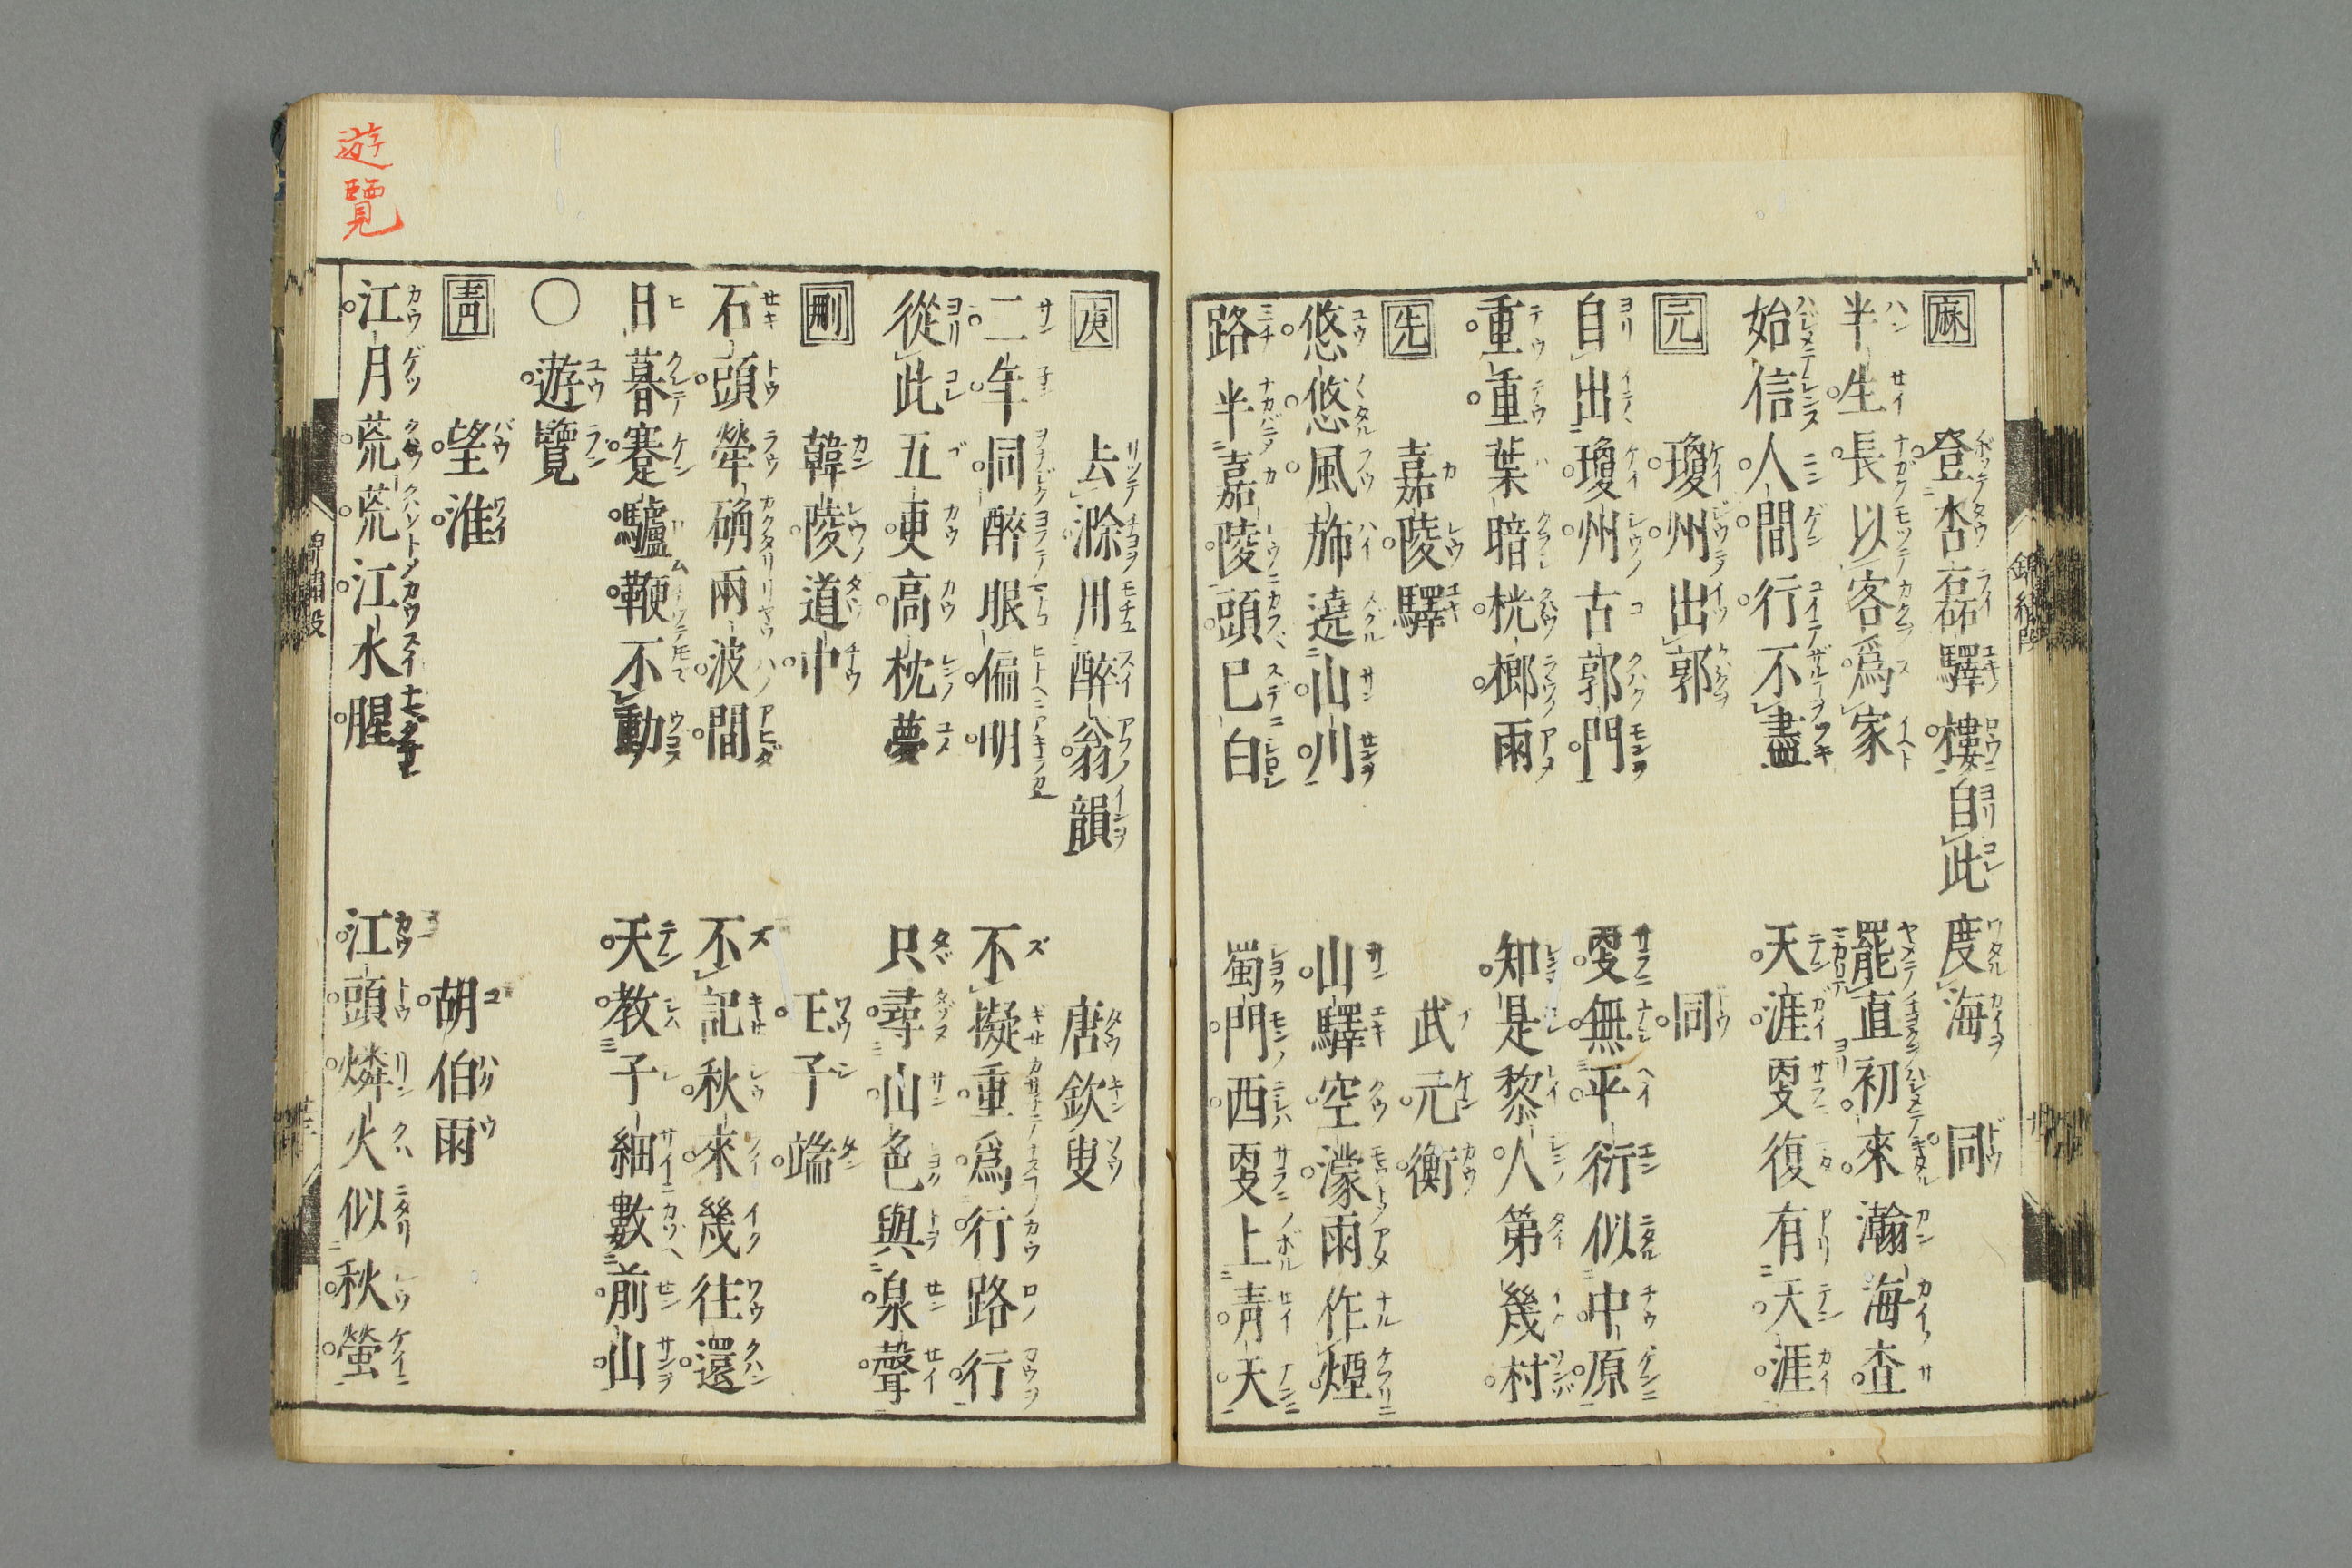 麻　登杏磊驛樓自此度海　同
半生長以客爲家　罷直初來瀚海査
始信人間行不盡　天涯更復有天涯
元　瓊州出郭　同
自出瓊州古郭門　更無平衍似中原
重重葉暗桄榔雨　知是黎人第幾村
先　嘉陵驛　武元衡
悠悠風旆遶山川　山驛空濛雨作煙
路半嘉陵頭已白　蜀門西更上靑天
庚　去滁川醉翁韻　唐欽叟
二年同醉眼偏明　不擬重爲行路行
從此五更高枕夢　只尋山色與泉聲
刪　韓陵道中　王子端
石頭犖确兩波間　不記秋來幾往還
日暮蹇驢鞭不動　天教子細數前山
○遊覽
靑　望淮　胡伯雨
江月荒荒江水腥　江頭燐火似秋螢
遊覽